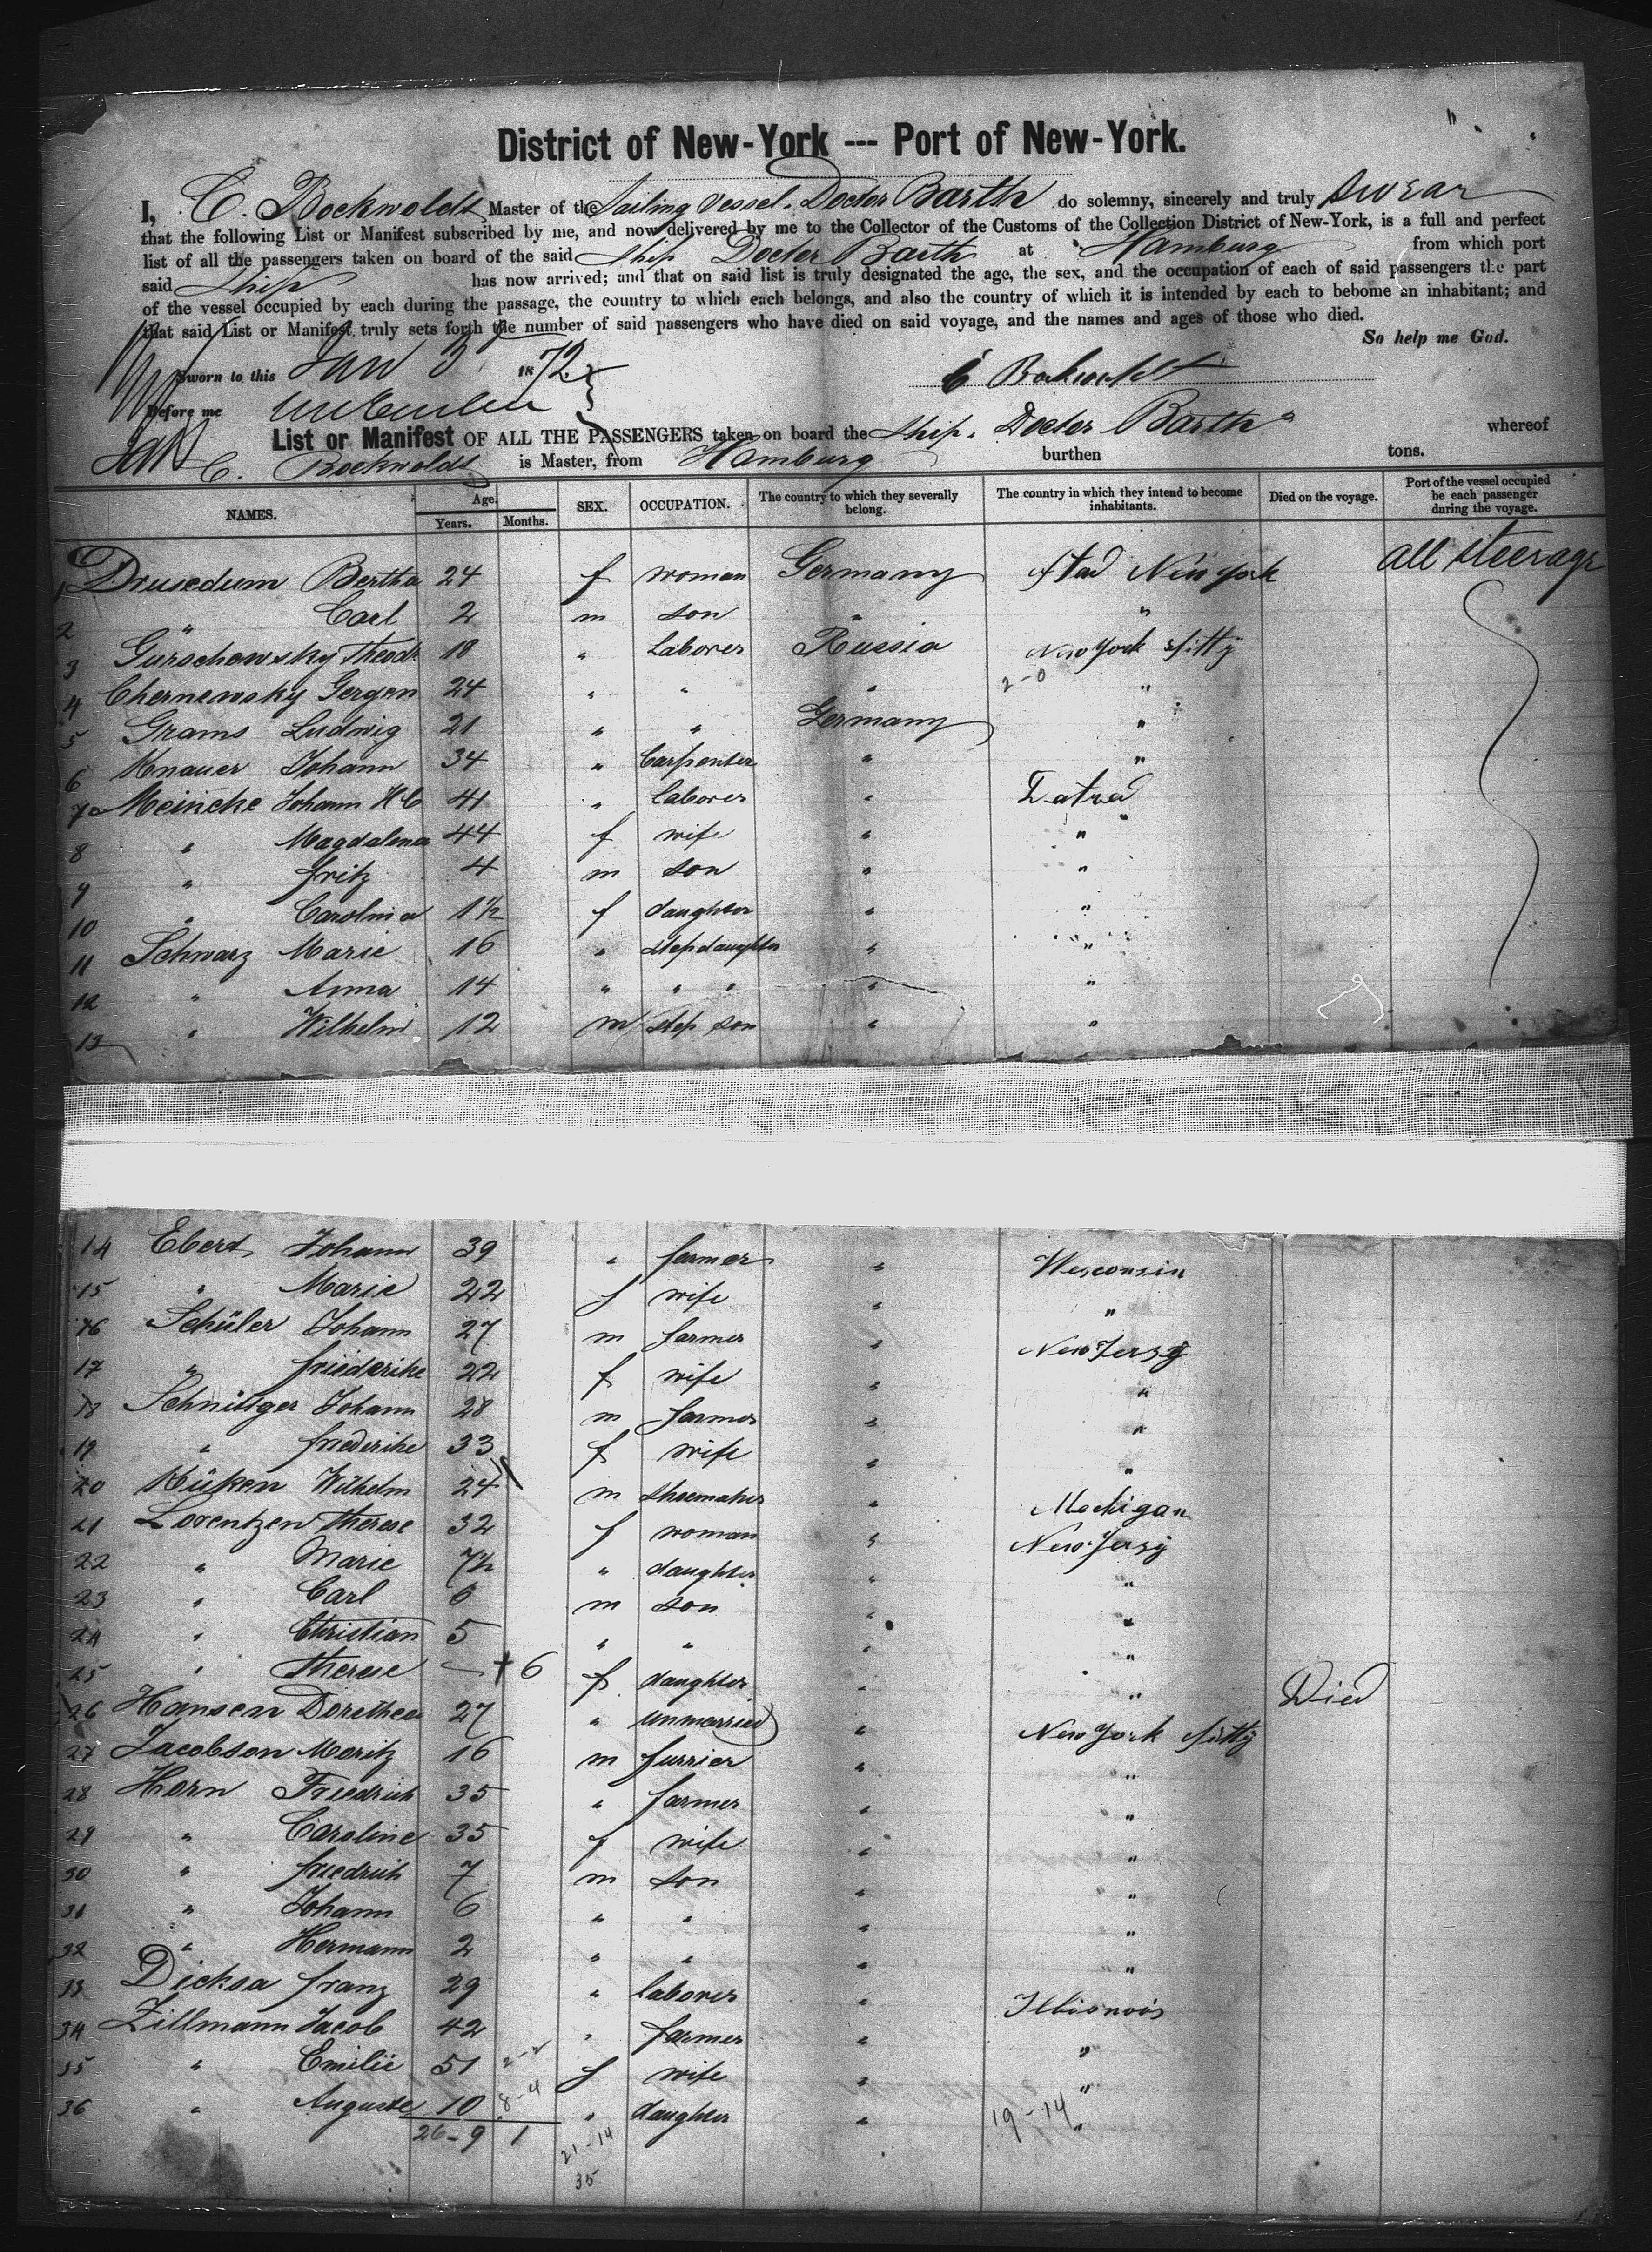 District of New-York --- Port of New-York.
I, C. Bockwoldt Master of the Sailing Vessel. Docter Barth do solemny, sincerely and truly swear
that the following List or Manifest subscribed by me, and now delivered by me to the Collector of the Customs of the Collection District of New-York, is a full and perfect
list of all the passengers taken on board of the said ship Docter Barth at Hamburg from which port
said ship has now arrived; and that on said list is truly designated the age, the sex, and the occupation of each of said passengers the part
of the vessel occupied by each during the passage, the country to which each belongs, and also the country of which it is intended by each to bebome an inhabitant; and
that said List or Manifest truly sets forth the number of said passengers who have died on said voyage, and the names and ages of those who died.
So help me God.
Sworn to this Jan 3 1872
C Bockwoldt
Before me
List or Manifest OF ALL THE PASSENGERS taken on board the ship. Docter Barth whereof
C. Bockwoldt is Master, from Hamburg burthen tons.
NAMES. Age. Years. Months. SEX. OCCUPATION. The country to which they severally belong. The country in which they intend to become inhabitants. Died on the voyage. Port of the vessel occupied be each passenger during the voyage.
1 Drusedum Bertha 24 f woman Germany Stad New York all steerage
2 " Carl 2 m son " "
3 Gurschowsky Theodr 18 " Laborer Russia New York Sitty
2-0
4 Chernewsky Gergen 24 " " " "
5 Grams Ludwig 21 " " Germany "
6 Knauer Johann 34 " Carpenter " "
7 Meincke Johann H C 41 " laborer "
8 " Magdalena 44 f wife " "
9 " Fritz 4 m son " "
10 " Carolina 1½ f daughter " "
11 Schwarz Marie 16 " stepdaughter " "
12 " Anna 14 " " " " "
13 " Wilhelm 12 m step son " "
14 Ebert Johann 39 " farmer " Wesconsin
15 " Marie 22 f wife " "
16 Schüler Johann 27 m farmer " New Jersy
17 " Friederike 22 f wife " "
18 Schnittger Johann 28 m farmer " "
19 " Friederike 33 f wife " "
20 Küken Wilhelm 24 m shoemaker " Mechigan
21 Lorentzen Therese 32 f woman " New Jersy
22 " Marie 7½ " daughter " "
23 " Carl 6 m son " "
24 " Christian 5 " " " "
25 " Therese — + 6 f daughter " " Died
26 Hansen Dorethea 27 " unmarried " New York Sitty
27 Jacobson Moritz 16 m furrier " "
28 Horn Friedrich 35 " farmer " "
29 " Caroline 35 f wife " "
30 " Friedrich 7 m son " "
31 " Johann 6 " " " "
32 " Hermann 2 " " " "
33 Dicksa Franz 29 " laborer " Illionois
34 Zillmann Jacob 42 " farmer " "
35 " Emilie 51 2-2 f wife " "
36 " Auguste 10 8-4 " daughter " "
19-14
26-9 1
21-14
35